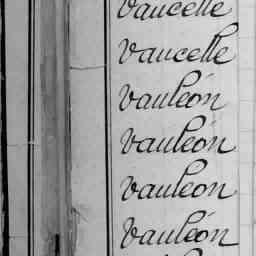 Vaucelle
Vaucelle
Vauléon
Vauléon
Vauleon
Vauléon